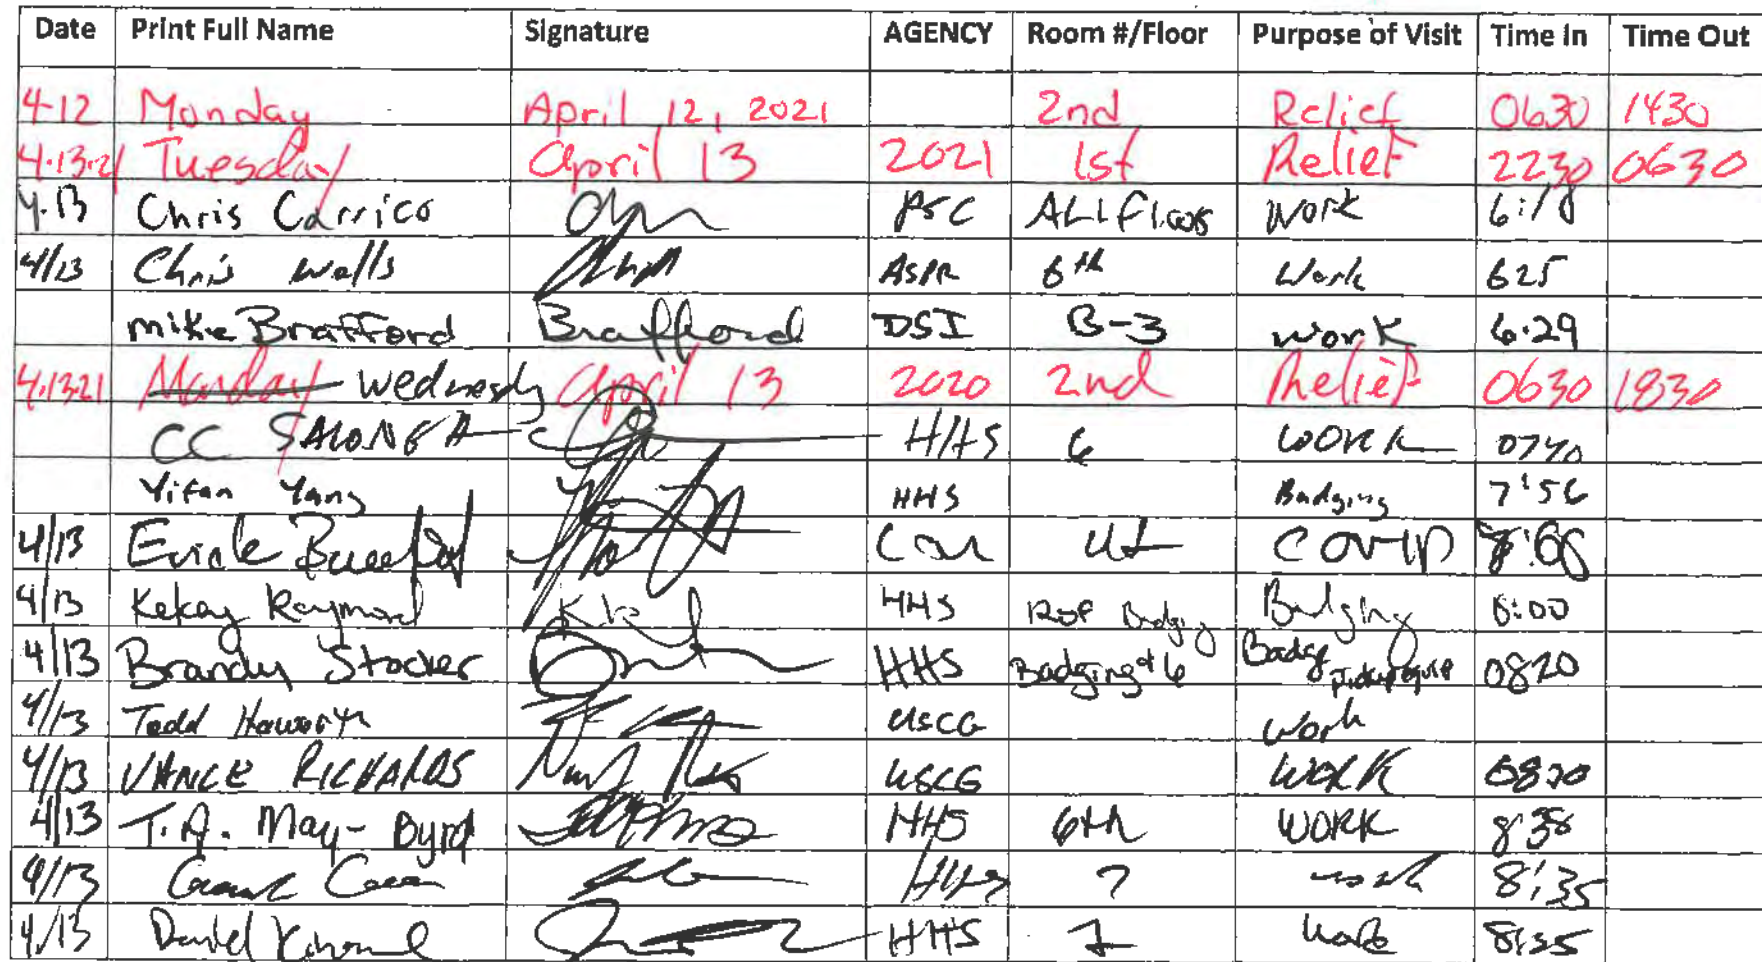 Date Print Full Name Signature AGENCY Room #/Floor Purpose of Visit Time In Time Out
4-12 Monday April 12, 2021 2nd Relief 0630 1430
4.13.21 Tuesday April 13 2021 1st Relief 2230 0630
4.13 Chris Carrico PSC ALL Floors Work 6:18
4/13 Chris Walls ASPR 6th Work 625
Mike Brafford Brafford DSI B-3 Work 6:29
4.13.21 Monday Wednesdy April 13 2020 2nd Relief 0630 1830
CC SALONGA HHS 6 WORK 0740
Yifan Yang HHS Badging 7:56
4/13 COVID
4/13 Kekoy Raymond HHS Badging 8:00
4/13 Brandy Stocker HHS Badging + 6 Badge 0820
4/13 Todd Haworth USCG Work
4/13 VANCE RICHARDS USCG WORK 0820
4/13 T.A. May-Byrd HHS 6th WORK 8:38
4/13 HHS ? work 8:35
4/13 Daniel HHS 1 Work 8:35